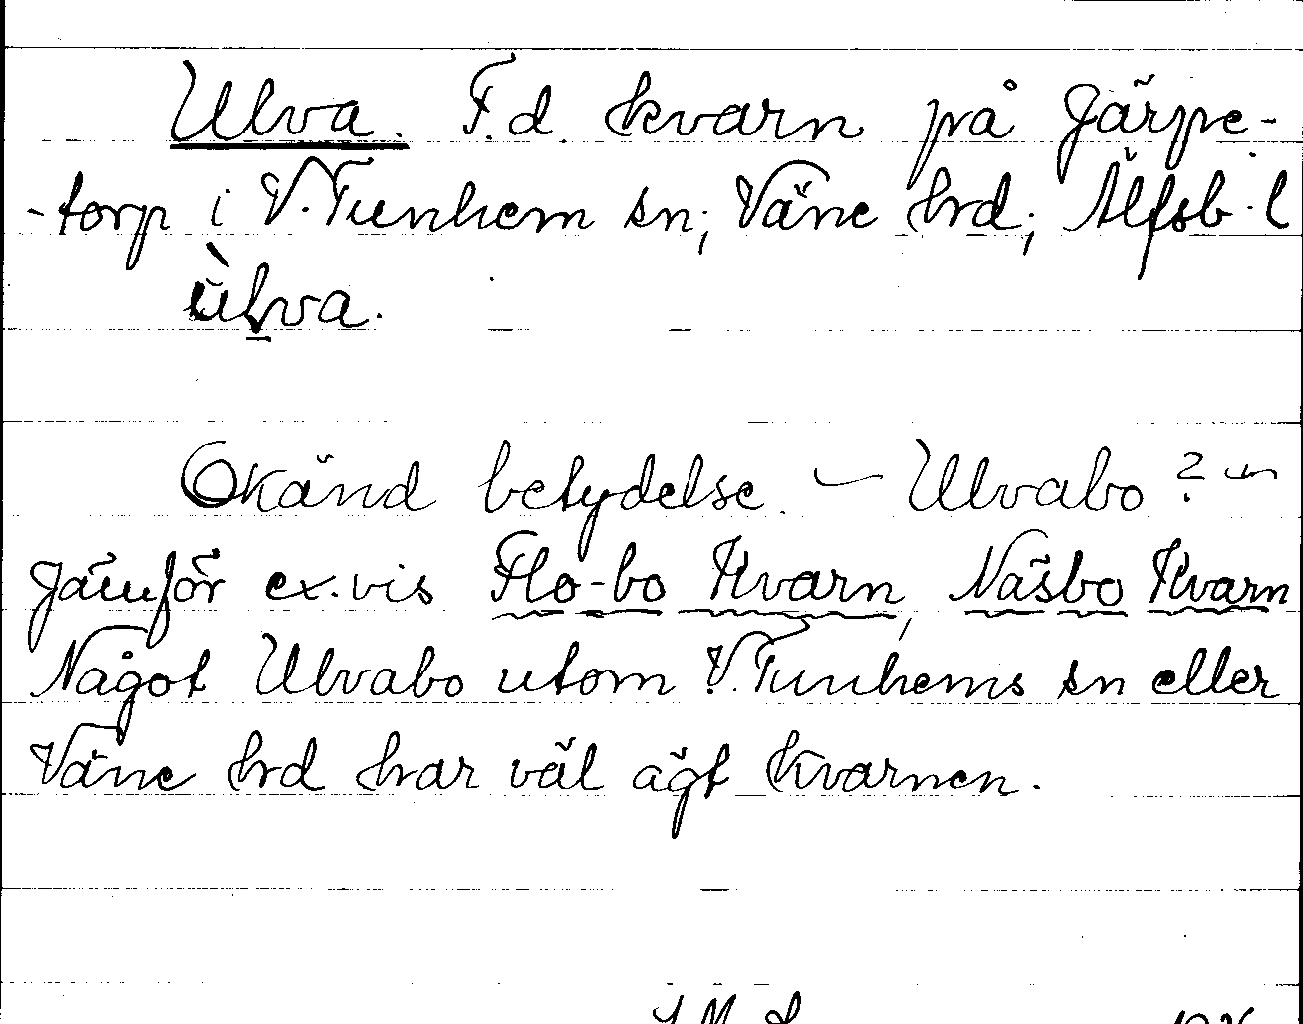 Ulva. F.d. kvarn på Järpe-
-torp i V. Tunhem sn; Väne hrd; Älfsb. l
ùlva.
Okänd betydelse. — Ulvabo? —
Jämför ex.vis Flo-bo Kvarn, Näsbo Kvarn
Något Ulvabo utom V. Tunhems sn eller
Väne hrd har väl ägt kvarnen.